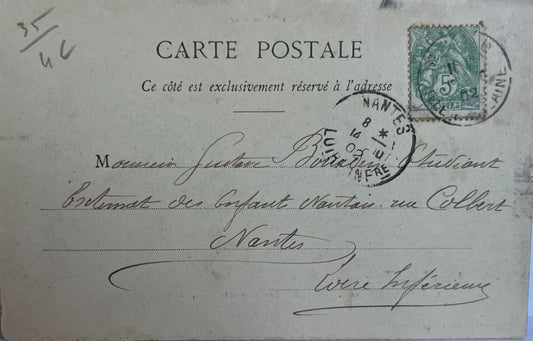 35/46
CARTE POSTALE
Ce côté est exclusivement réservé à l'adresse
5
NANTES
8
14
02
LOIRE INFRE
Monsieur Gustave Etudiant
Externat des Enfant Nantais. rue Colbert
Nantes
Loire Inférieure